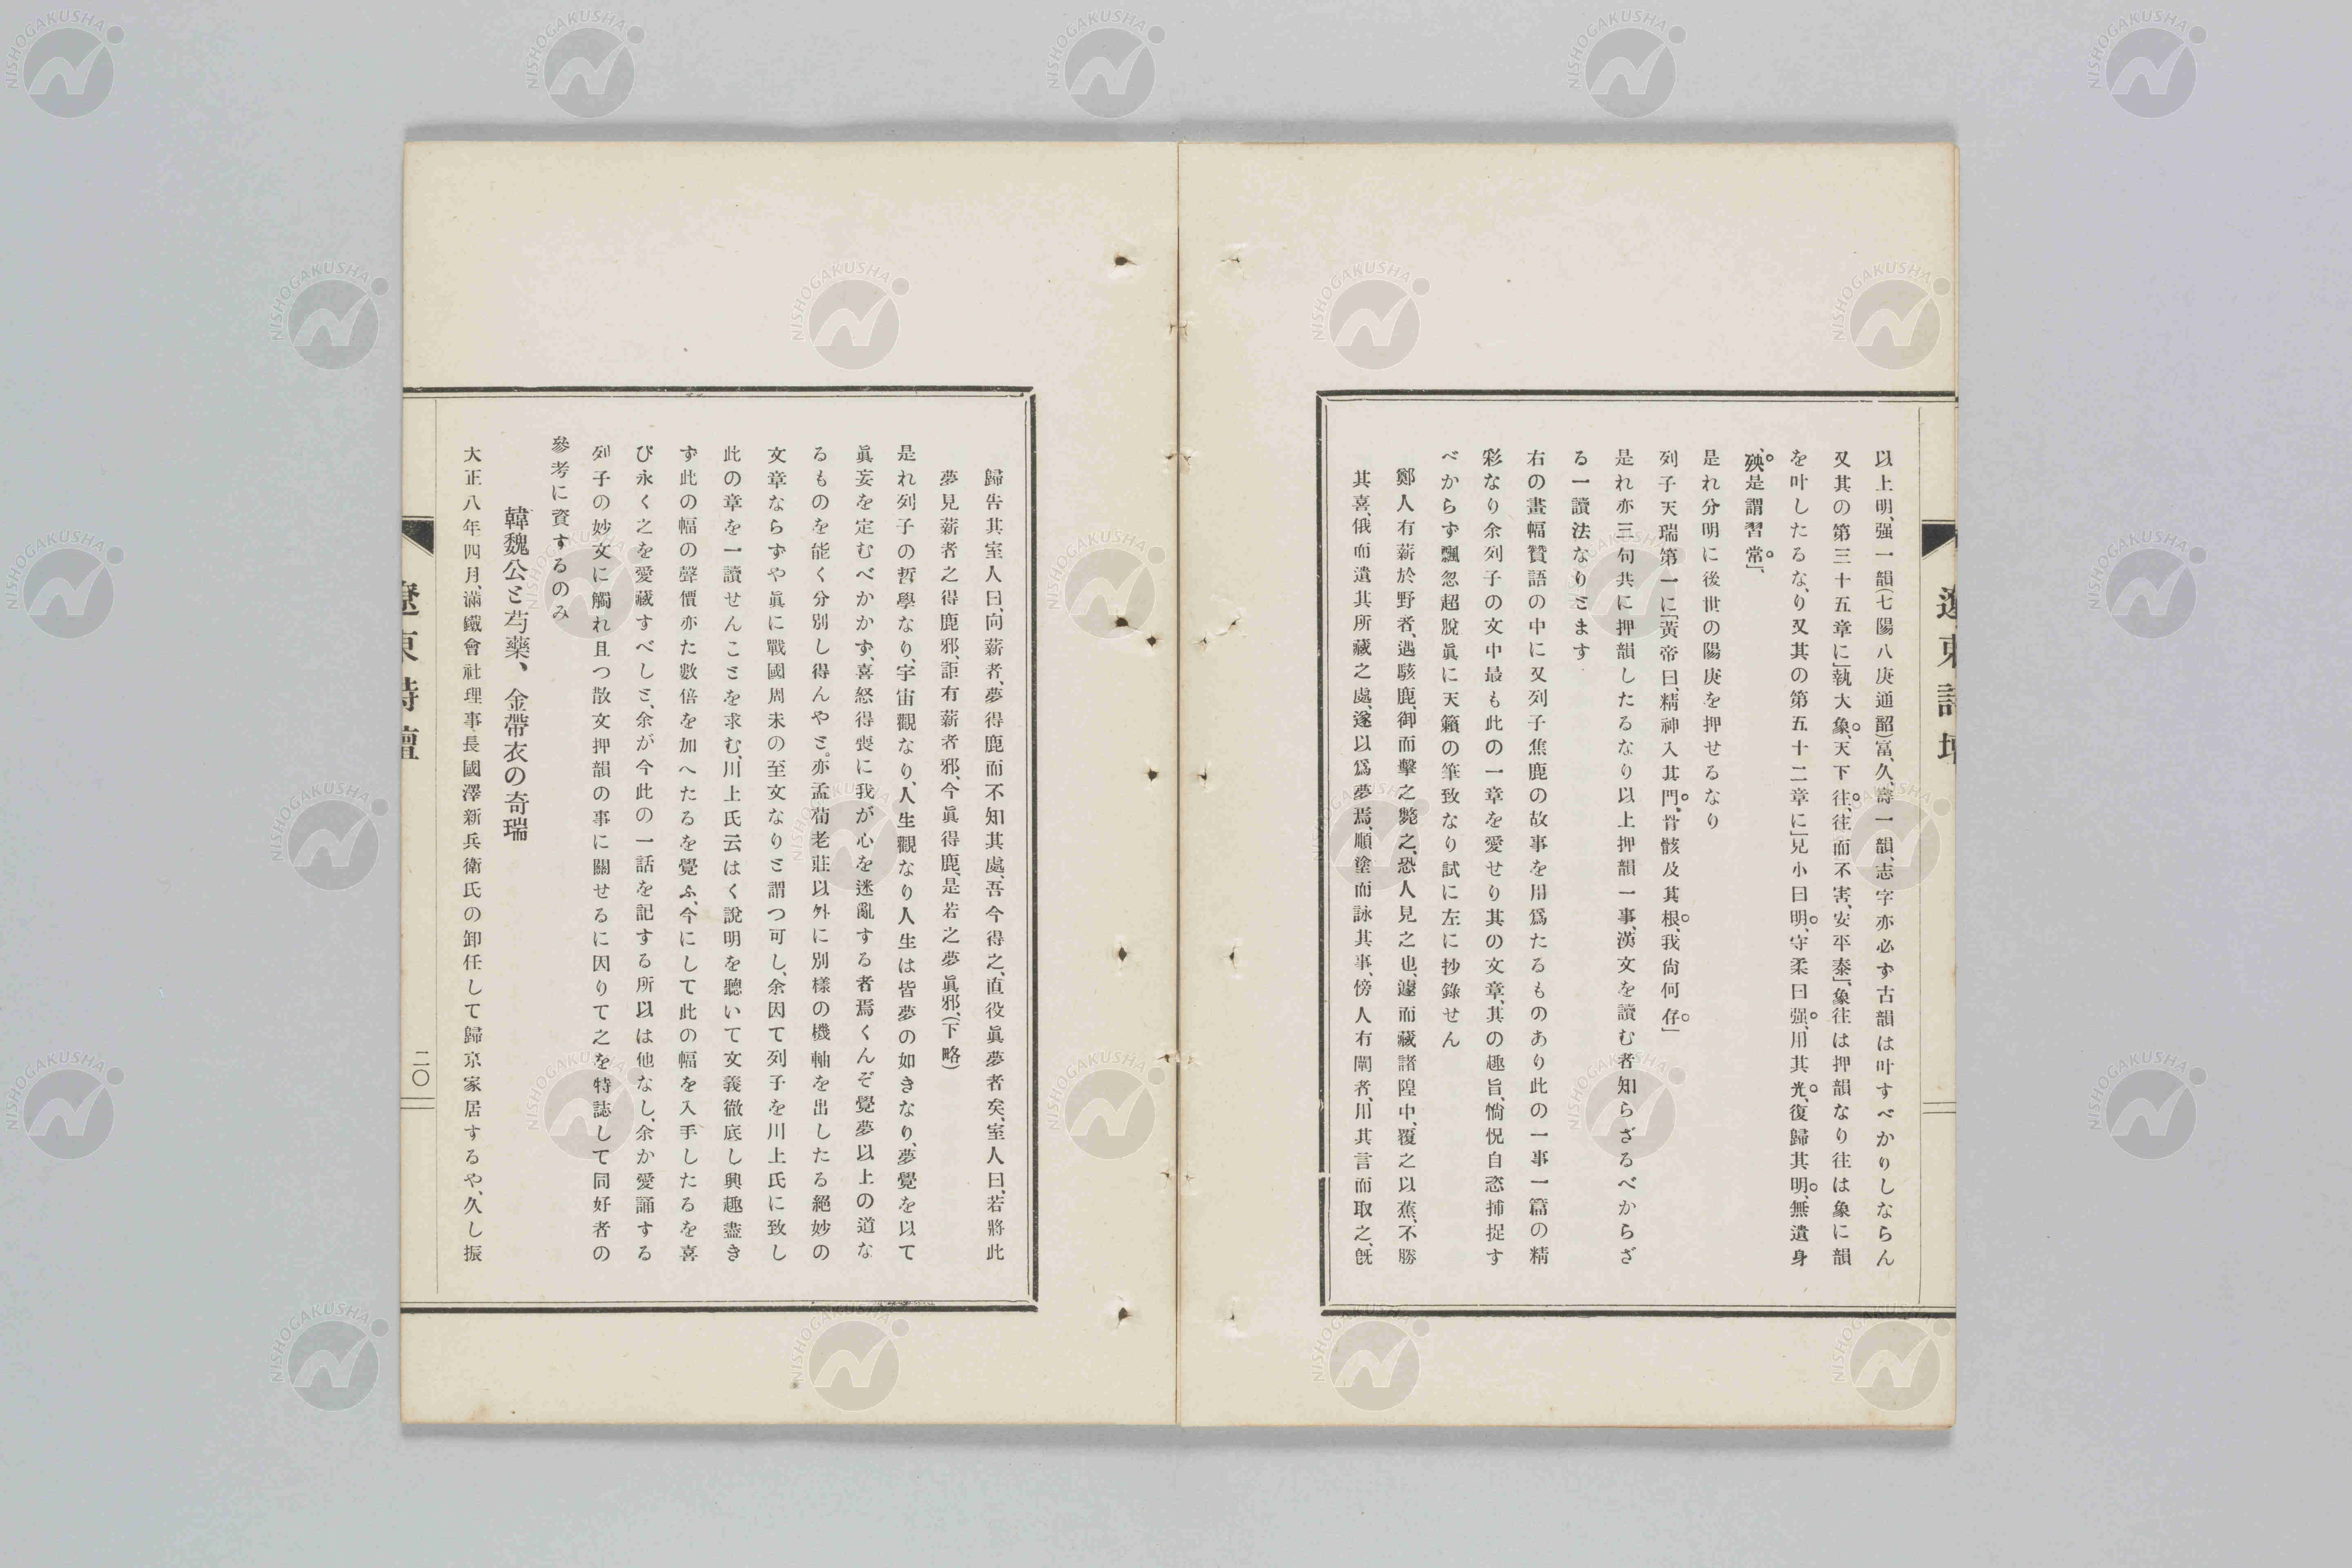 遼東詩壇
以上明、强一韻(七陽八庚通韻)富、久、壽一韻、志字亦必ず古韻は叶すべかりしならん
又其の第三十五章に「執大象、天下往、往而不害、安平泰」、象往は押韻なり往は象に韻
を叶したるなり、又其の第五十二章に「見小曰明、守柔曰强、用其光、復歸其明、無遺身
殃、是謂習常」、
是れ分明に後世の陽庚を押せるなり
列子天瑞第一に「黃帝曰、精神入其門、骨骸及其根、我尙何存」
是れ亦三句共に押韻したるなり以上押韻一事、漢文を讀む者知らざるべからざ
る一讀法なりとます
右の畫幅贊語の中に又列子焦鹿の故事を用爲たるものあり此の一事一篇の精
彩なり余列子の文中最も此の一章を愛せり其の文章、其の趣旨、惝怳自恣捕捉す
べからず飄忽超脫眞に天籟の筆致なり試に左に抄錄せん
鄭人有薪於野者、遇駭鹿、御而擊之斃之、恐人見之也、遽而藏諸隍中、覆之以蕉、不勝
其喜、俄而遺其所藏之處、遂以爲夢焉、順塗而詠其事、傍人有聞者、用其言而取之、旣
歸告其室人曰、向薪者、夢得鹿而不知其處、吾今得之、直役眞夢者矣、室人曰、若將此
夢見薪者之得鹿邪、詎有薪者邪、今眞得鹿、是若之夢眞邪、(下略)
是れ列子の哲學なり、宇宙觀なり、人生觀なり人生は皆夢の如きなり、夢覺を以て
眞妄を定むべかかず、喜怒得喪に我が心を迷亂する者焉くんぞ覺夢以上の道な
るものを能く分別し得んやと。亦孟荀老莊以外に別樣の機軸を出したる絕妙の
文章ならずや眞に戰國周末の至文なりと謂つ可し、余因て列子を川上氏に致し
此の章を一讀せんことを求む、川上氏云はく說明を聽いて文義徹底し興趣盡き
ず此の幅の聲價亦た數倍を加へたるを覺ふ、今にして此の幅を入手したるを喜
び永く之を愛藏すべしと、余が今此の一話を記する所以は他なし、余か愛誦する
列子の妙文に觸れ且つ散文押韻の事に關せるに因りて之を特誌して同好者の
參考に資するのみ
韓魏公と芍藥、金帶衣の奇瑞
大正八年四月、滿鐵會社理事長國澤新兵衛氏の卸任して歸京家居するや、久し振
遼東詩壇
二〇